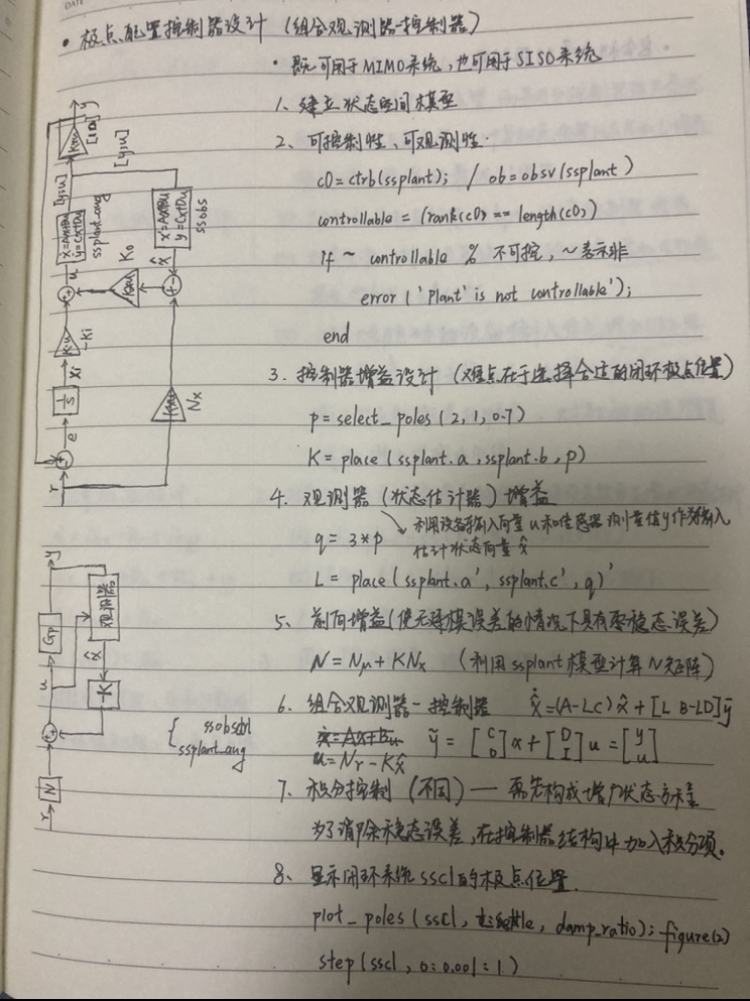 DATE
• 极点配置控制器设计 (组合观测器-控制器)
• 既可用于MIMO系统,也可用于SISO系统
1、建立状态空间模型
2、可控制性、可观测性.
c0=ctrb(ssplant); / ob=obsv(ssplant)
controllable = (rank(c0) == length(c0))
If ~ controllable % 不可控, ~表示非
error ('Plant' is not controllable');
end
3、控制器增益设计 (难点在于选择合适的闭环极点位置)
p=select_poles(2,1,0.7)
K=place(ssplant.a,ssplant.b,p)
4、观测器(状态估计器)增益
利用设备输入向量u和传感器测量值y作为输入
估计状态向量x̂
q=3*p
L=place(ssplant.a',ssplant.c',q)'
5、前向增益(使无建模误差的情况下具有零稳态误差)
N=Nμ+KNx (利用ssplant模型计算N矩阵)
6、组合观测器-控制器 x̂̇=(A-LC)x̂+[L B-LD]ȳ
{ ssobsctrl
ssplant_aug
ȳ=[C 0]x+[D I]u=[y u]
u=Nr-Kx̂
7、积分控制(不同)—需先构成增广状态方程
为了消除稳态误差,在控制器结构中加入积分项.
8、显示闭环系统sscl的极点位置.
plot_poles(sscl, t_settle, damp_ratio); figure(2)
step(sscl, 0:0.001:1)
r
e
1/s
xi
K*u
-Ki
u
x'=Ax+Bu
y=Cx+Du
ssplant_aug
[y;u]
K*u
[I 0]
y
[y;u]
x'=Ax+Bu
y=Cx+Du
ssobs
x̂
K*u
K0
K*u
Nx
r
N
u
Gp
y
观测器
x̂
-K